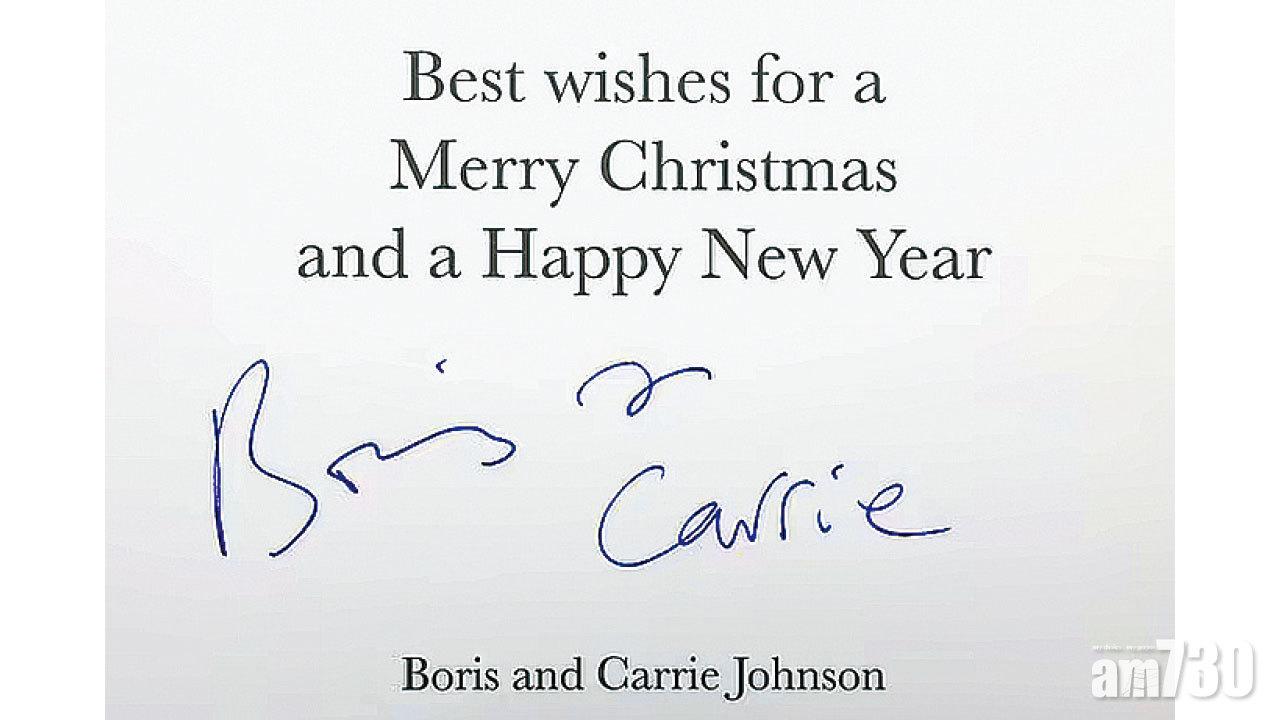 Best wishes for a
Merry Christmas
and a Happy New Year
Boris &
Carrie
Boris and Carrie Johnson
am730